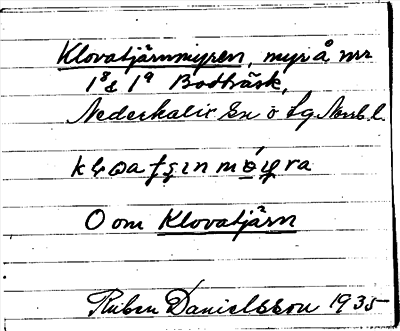 Klovatjärnmyren, myr å nr
1⁸ & 1⁹ Bodträsk,
Nederkalix sn o tg Norrb. l.
O om Klovatjärn
Ruben Danielsson 1935